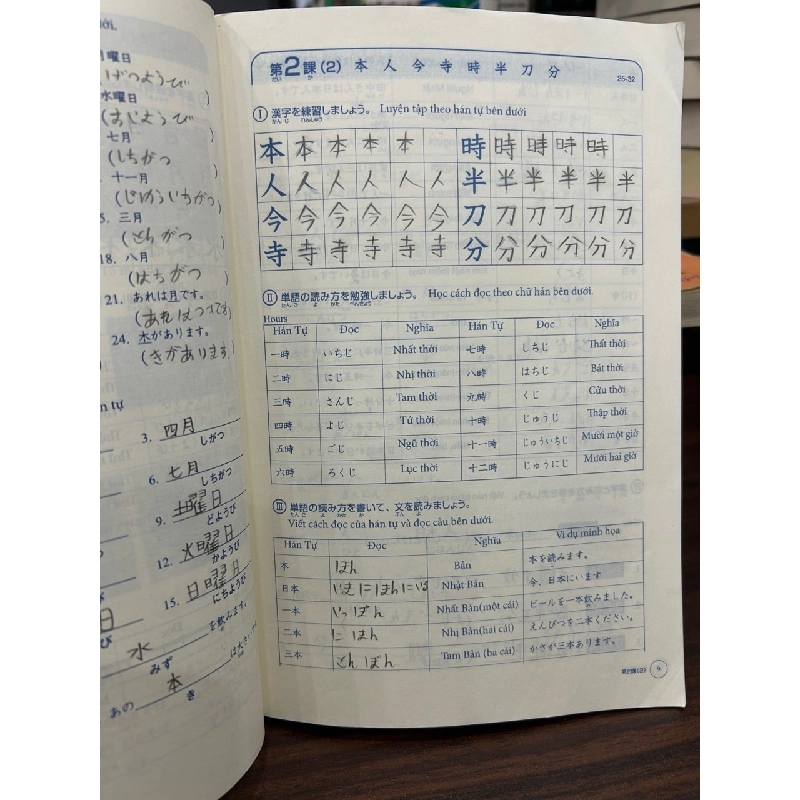 曜日
げつようび
水曜日
七月
(しちがつ
十一月
三月
18. 八月
(はちがつ )
21. あれは月です。
24. 木があります。
(きがあります)
3. 四月
しがつ
6. 七月
しちがつ
9. 土曜日
どようび
12. 火曜日
かようび
15. 日曜日
にちようび
水 を飲みます。
みず
あの 本
き
第2課(2) 本 人 今 寺 時 半 刀 分
だい か
25-32
Ⅰ 漢字を練習しましょう。 Luyện tập theo hán tự bên dưới
かんじ れんしゅう
本 本 本 本 本 時 時 時 時 時
人 人 人 人 人 人 半 半 半 半 半 半
今 今 今 今 今 今 刀 刀 刀 刀 刀 刀
寺 寺 寺 寺 寺 寺 分 分 分 分 分 分
Ⅱ 単語の読み方を勉強しましょう。 Học cách đọc theo chữ hán bên dưới.
たんご よ かた べんきょう
Hours
Hán Tự Đọc Nghĩa Hán Tự Đọc Nghĩa
一時 いちじ Nhất thời 七時 しちじ Thất thời
二時 にじ Nhị thời 八時 はちじ Bát thời
三時 さんじ Tam thời 九時 くじ Cửu thời
四時 よじ Tứ thời 十時 じゅうじ Thập thời
五時 ごじ Ngũ thời 十一時 じゅういちじ Mười một giờ
六時 ろくじ Lục thời 十二時 じゅうにじ Mười hai giờ
Ⅲ 単語の読み方を書いて、文を読みましょう。
たんご よ かた か ぶん よ
Viết cách đọc của hán tự và đọc câu bên dưới.
Hán Tự Đọc Nghĩa Ví dụ minh họa
本 ほん Bản 本を読みます。
日本 いまにほんにいる Nhật Bản 今、日本にいます
一本 いっぽん Nhất Bản(một cái) ビールを一本飲みました。
二本 にほん Nhị Bản(hai cái) えんぴつを二本ください。
三本 さんぼん Tam Bản (ba cái) かさが三本あります。
第2課(2) 9